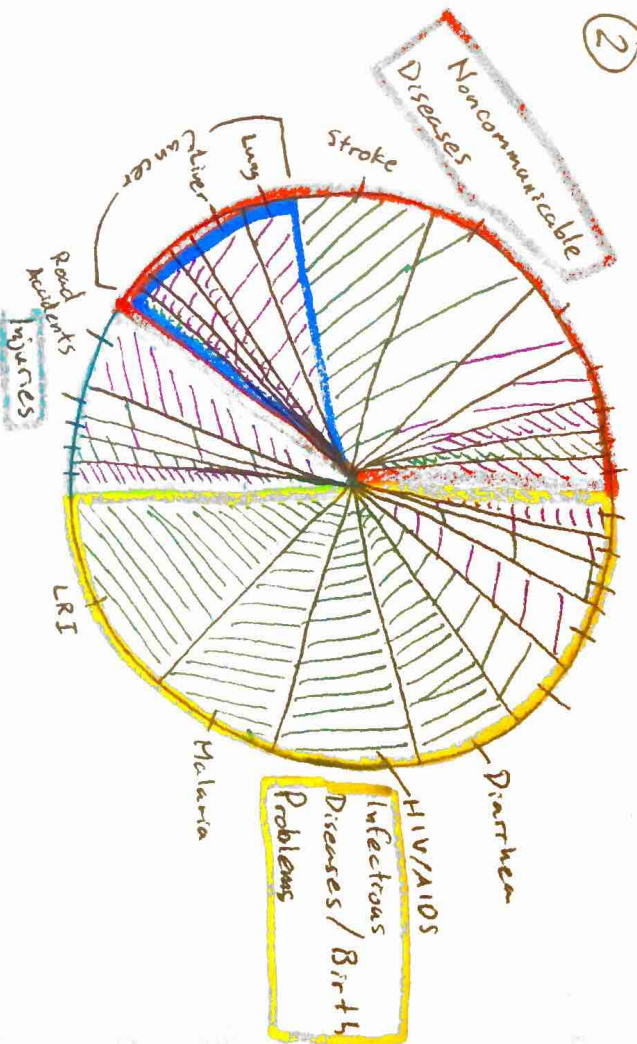 2
Noncommunicable
Diseases
Stroke
Lung
Liver
Cancer
Road
Accidents
Injuries
LRI
Malaria
HIV/AIDS
Diarrhea
Infectious
Diseases/Birth
Problems